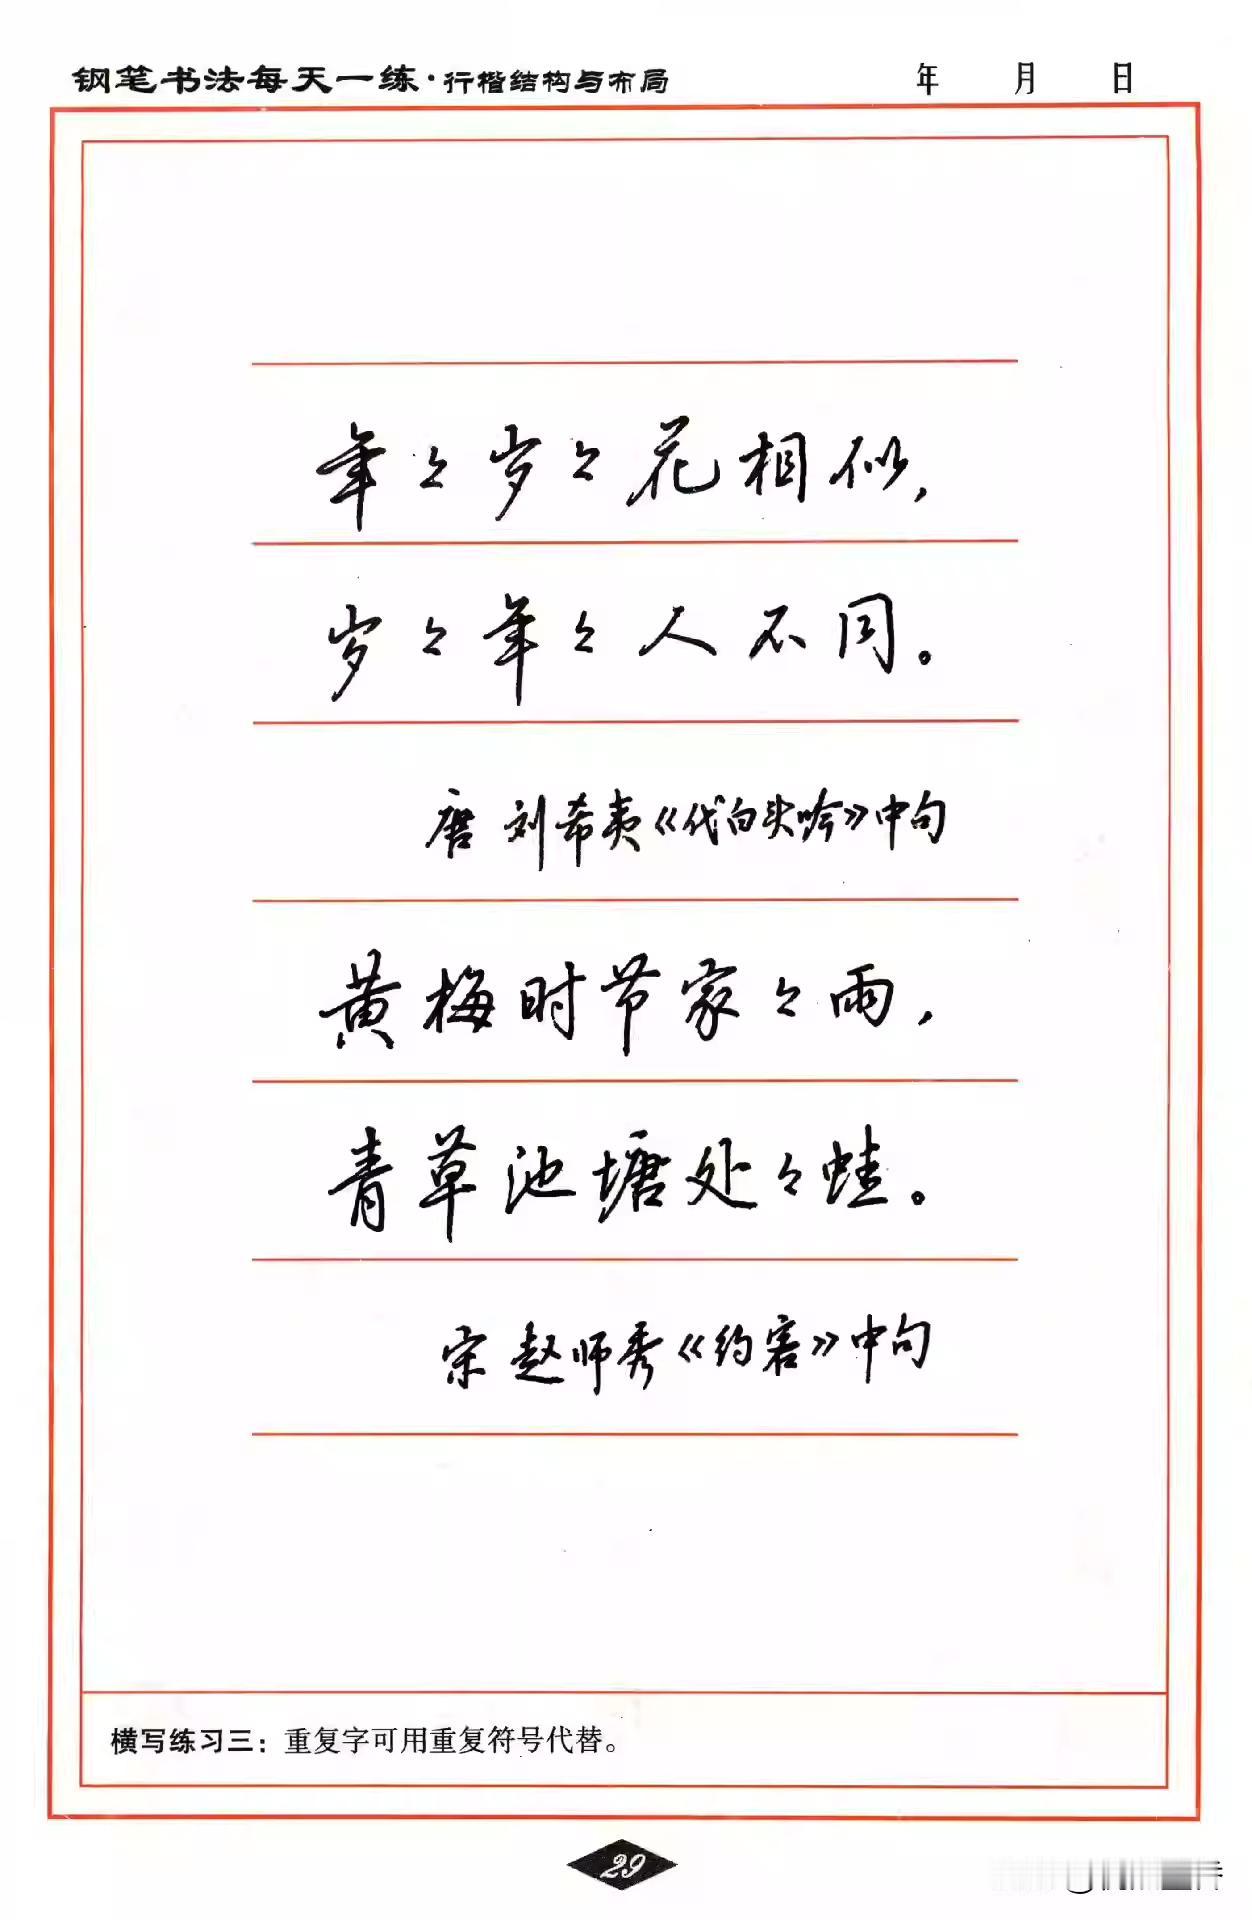 钢笔书法每天一练·行楷结构与布局 年 月 日
年々岁々花相似，
岁々年々人不同。
唐 刘希夷《代白头吟》中句
黄梅时节家々雨，
青草池塘处々蛙。
宋 赵师秀《约客》中句
横写练习三：重复字可用重复符号代替。
29